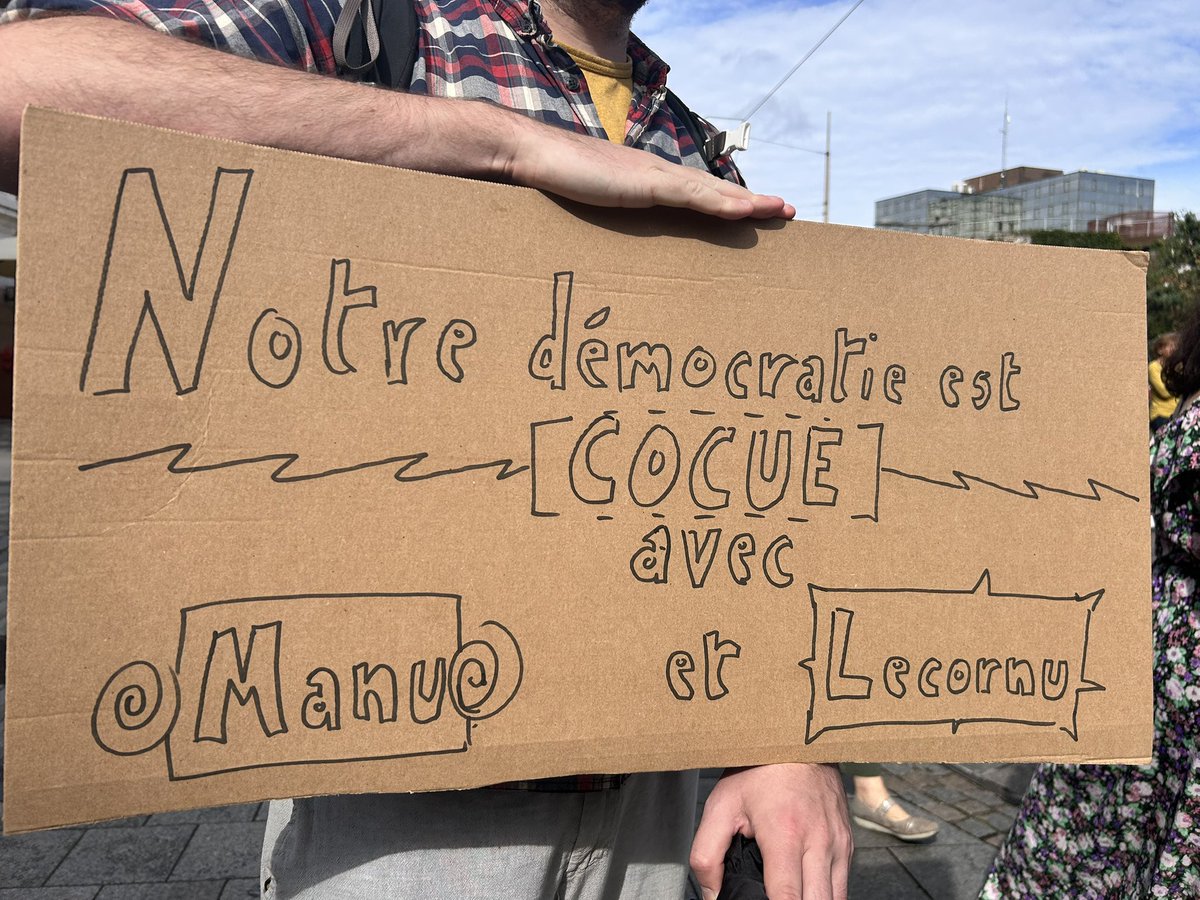 Notre démocratie est
[COCUE]
avec
Manu et Lecornu